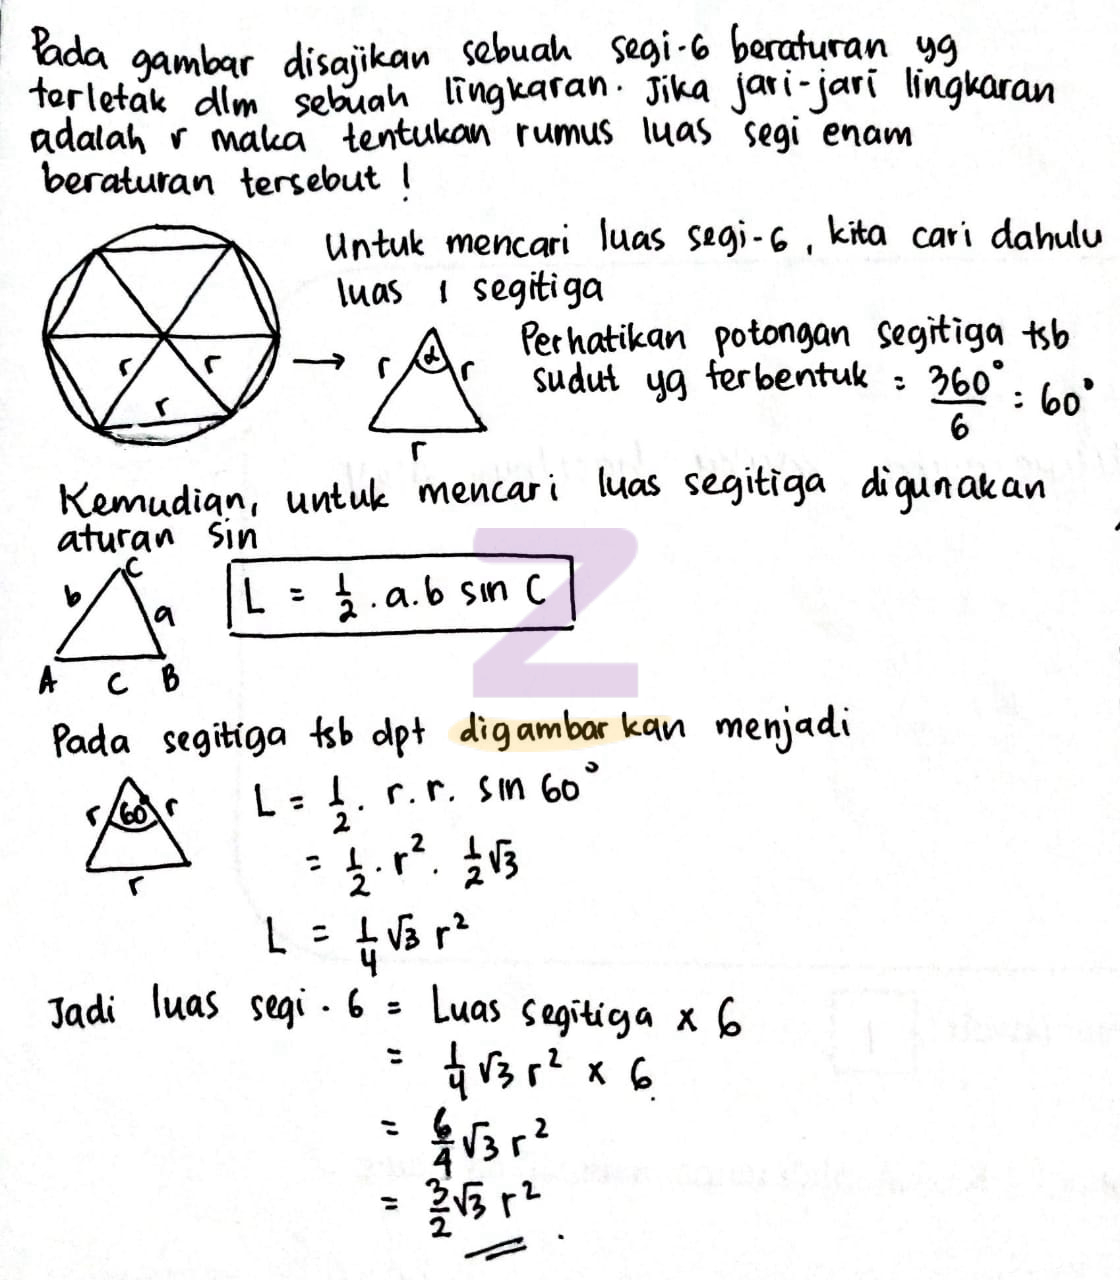 Pada gambar disajikan sebuah segi-6 beraturan yg
terletak dlm sebuah lingkaran. Jika jari-jari lingkaran
adalah r maka tentukan rumus luas segi enam
beraturan tersebut !
Untuk mencari luas segi-6, kita cari dahulu
luas 1 segitiga
r r
r
r α r
r
Perhatikan potongan segitiga tsb
sudut yg terbentuk = 360°/6 = 60°
Kemudian, untuk mencari luas segitiga digunakan
aturan sin
C
b a
A c B
L = 1/2 . a.b sin C
Z
Pada segitiga tsb dpt digambarkan menjadi
r 60° r
r
L = 1/2 . r. r. sin 60°
= 1/2 . r². 1/2 √3
L = 1/4 √3 r²
Jadi luas segi-6 = Luas segitiga x 6
= 1/4 √3 r² x 6
= 6/4 √3 r²
= 3/2 √3 r²